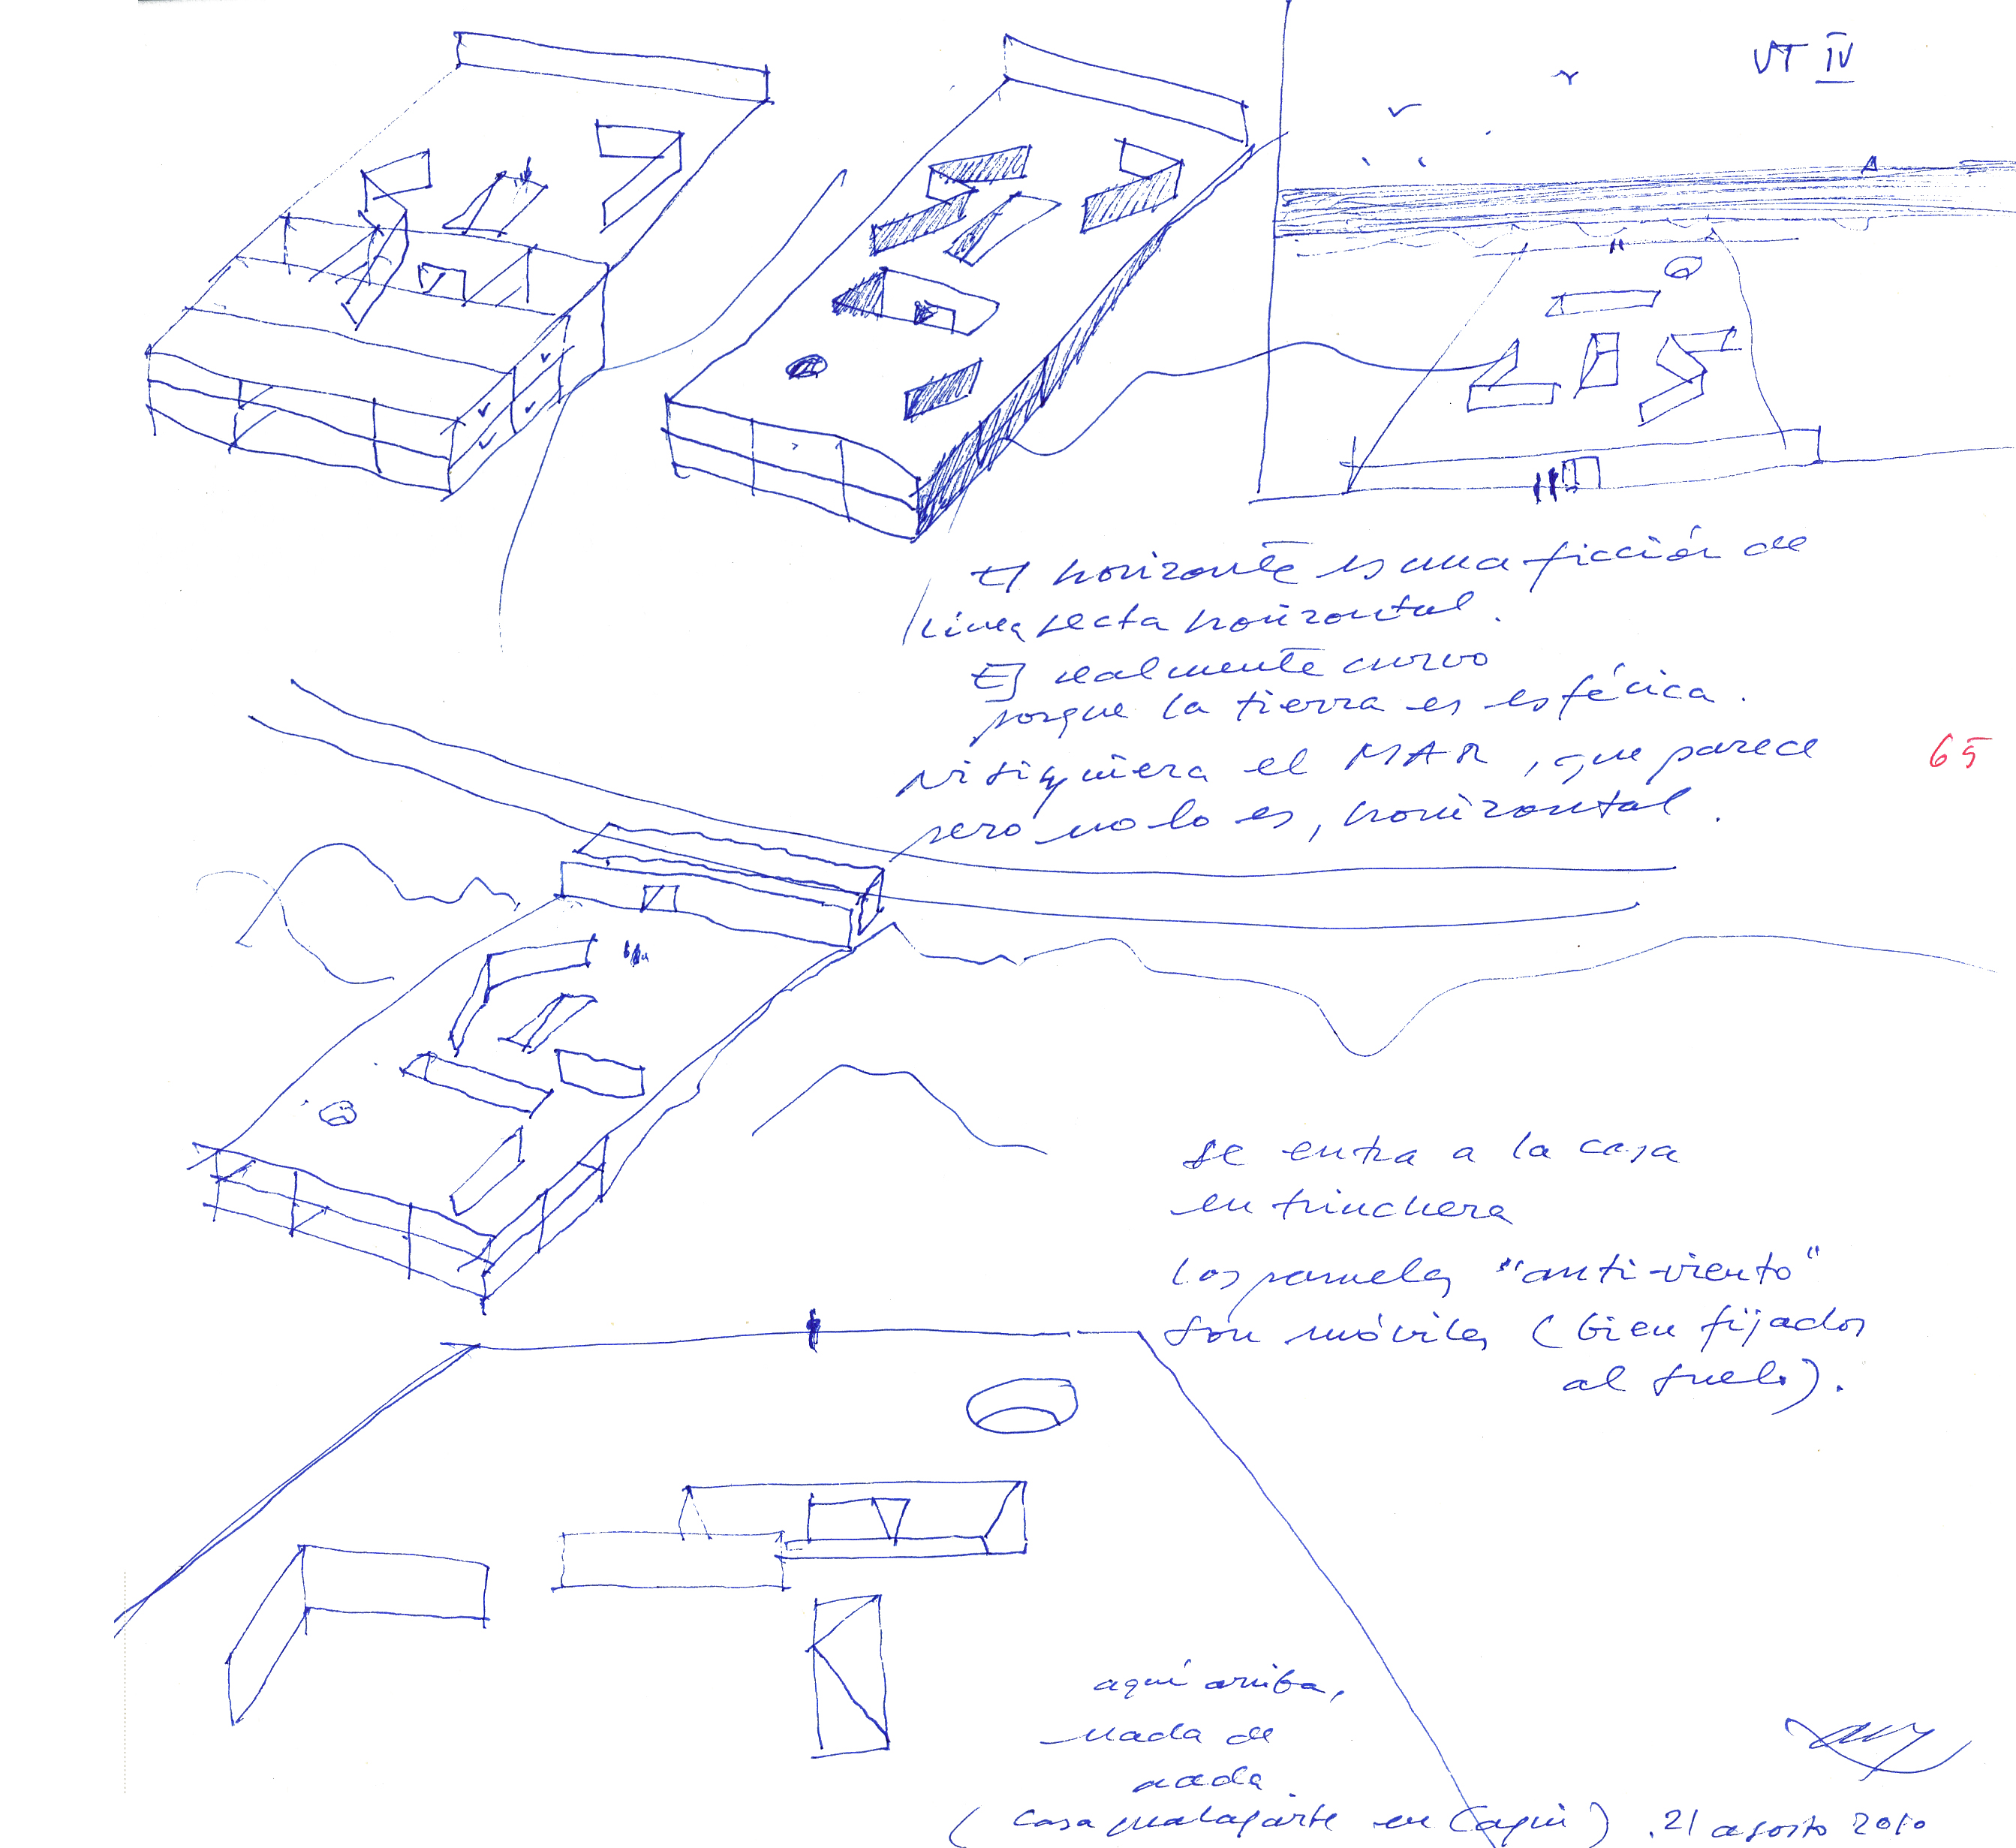 VT IV
El horizonte es una ficción de
línea recta horizontal.
Es realmente curvo
porque la tierra es esférica.
Ni siquiera el MAR, que parece
65
pero no lo es, horizontal.
se entra a la casa
en trinchera
Los paneles "anti-viento"
son móviles (bien fijados
al suelo).
aquí arriba,
nada de
nada
(casa malaparte en Capri). 21 agosto 2010